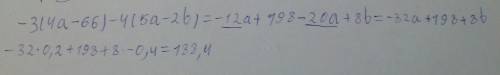 -3(4a-66)-4(5a-2b)=-12a+198-20a+8b=-32a+198+8b
-32·0,2+198+8·-0,4=188,4